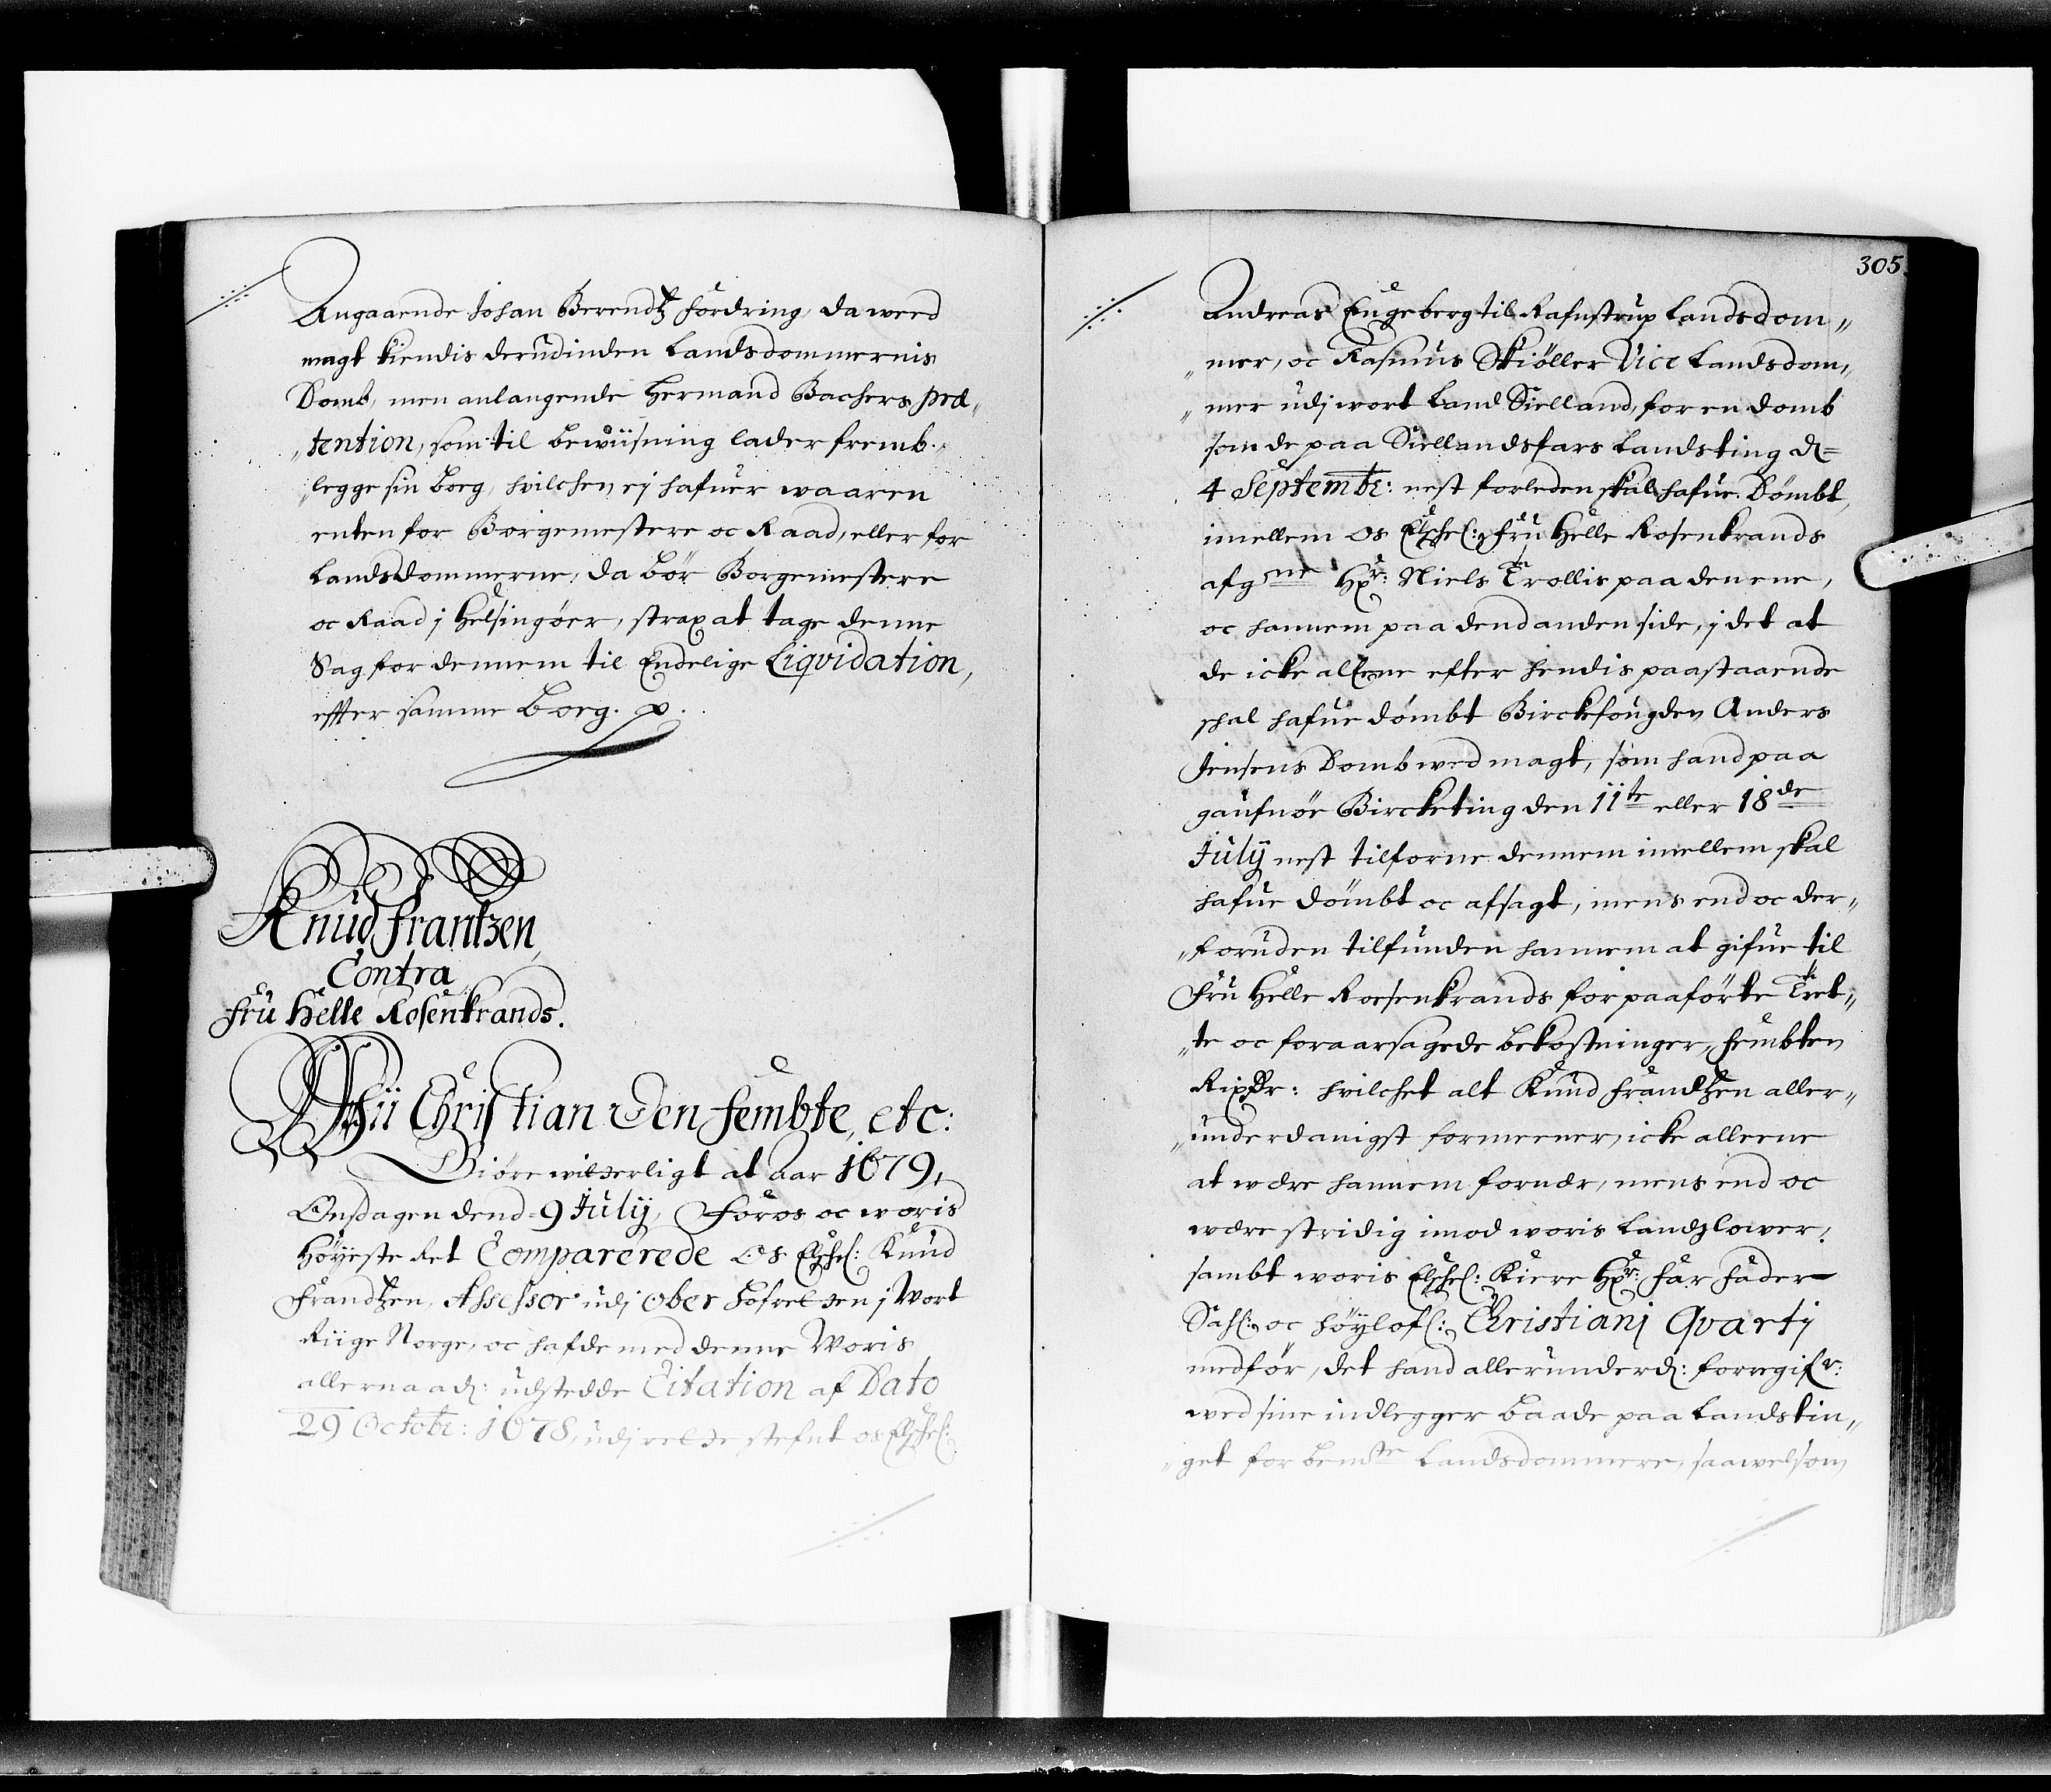 Angaaende Johan Berendtz fordring, da werd
magt kiendis derudinden Landsdommernis
Domb, men anlangende Hermand Bachers præ„
„tention, som til bewiisning lader fremb„
„legge sin Borg, hvilchen ej hafuer waaren
enten for Borgemestere oc Raad, eller for
Landsdommerne, da bør Borgemestere
oc Raad j Helsingøer, strax at tage denne
Sag for dennem til Endelige Liqvidation,
effter samme Borg. p.
Knud Frantzen,
Contra
Fru Helle Rosenkrands.
Wii Christian den Fembte, etc:
Giøre witterligt at aar 1679,
Onsdagen dend 9 Julij, For os oc woris
Høyeste Ret Comparerede Os Elschel: Knud
Frandtzen, Assessor udj Ober Hofretten j Wort
Riige Norge, oc hafde med denne Woris
allernaad: udstedde Citation af Dato
29 Octobr: 1678, udj rette stefnt os Elschel:
305.
Andreas Engeberg til Rafnstrup Landsdom„
„mer, oc Rasmus Skiøller Vice Landsdom„
„mer udj wort Land Sielland, for en domb
som de paa Siellandsfars Landsting d=
4 Septembr: nest forleden skal hafue Dømbt,
imellem Os Elschel: Fru Helle Rosenkrands
afgne Hr: Niels Trollis paa den ene,
oc hannem paa dend anden side, j det at
de icke allene efter hendis paastaaende
schal hafue dømbt Birckfougden Anders
Jensens Domb wed magt, som hand paa
gaufnøe Bircketing den 11te eller 18de
Julij nest tilforne dennem imellem skal
hafue dømbt oc afsagt, mens end oc der„
„foruden tilfunden hannem at gifue til
Fru Helle Roesenkrands for paaførte Tret„
„te oc foraarsagede bekostninger, fembten
Rixdr: hvilchet alt Knud Frandtzen aller„
„underdanigst formeener, icke alleene
at wære hannem fornær, mens end oc
wære stridig imod woris Landzlower,
sambt woris Elschel: Kiere Hr: Far Faders
Sahl: oc høylofl: Christianj Qvartj
medfør, det hand allerunderd: foregifr:
wed sine indlegger baade paa Landstin„
„get for bemte Landsdommere, saawelsom